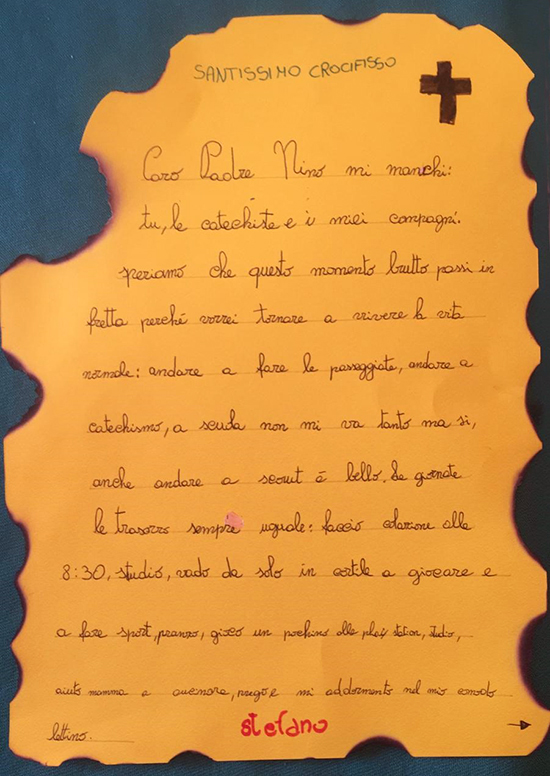 SANTISSIMO CROCIFISSO
Caro Padre Nino mi manchi:
tu, le catechiste e i miei compagni.
speriamo che questo momento brutto passi in
fretta perché vorrei tornare a vivere la vita
normale: andare a fare le passeggiate, andare a
catechismo, a scuola non mi va tanto ma si,
anche andare a scout é bello. Le giornate
le trascorro sempre uguale: faccio colazione alle
8:30, studio, vado da solo in cortile a giocare e
a fare sport, pranzo, gioco un pochino alla play station, studio,
aiuto mamma a cucinare, prego e mi addormento nel mio comodo
lettino.
stefano